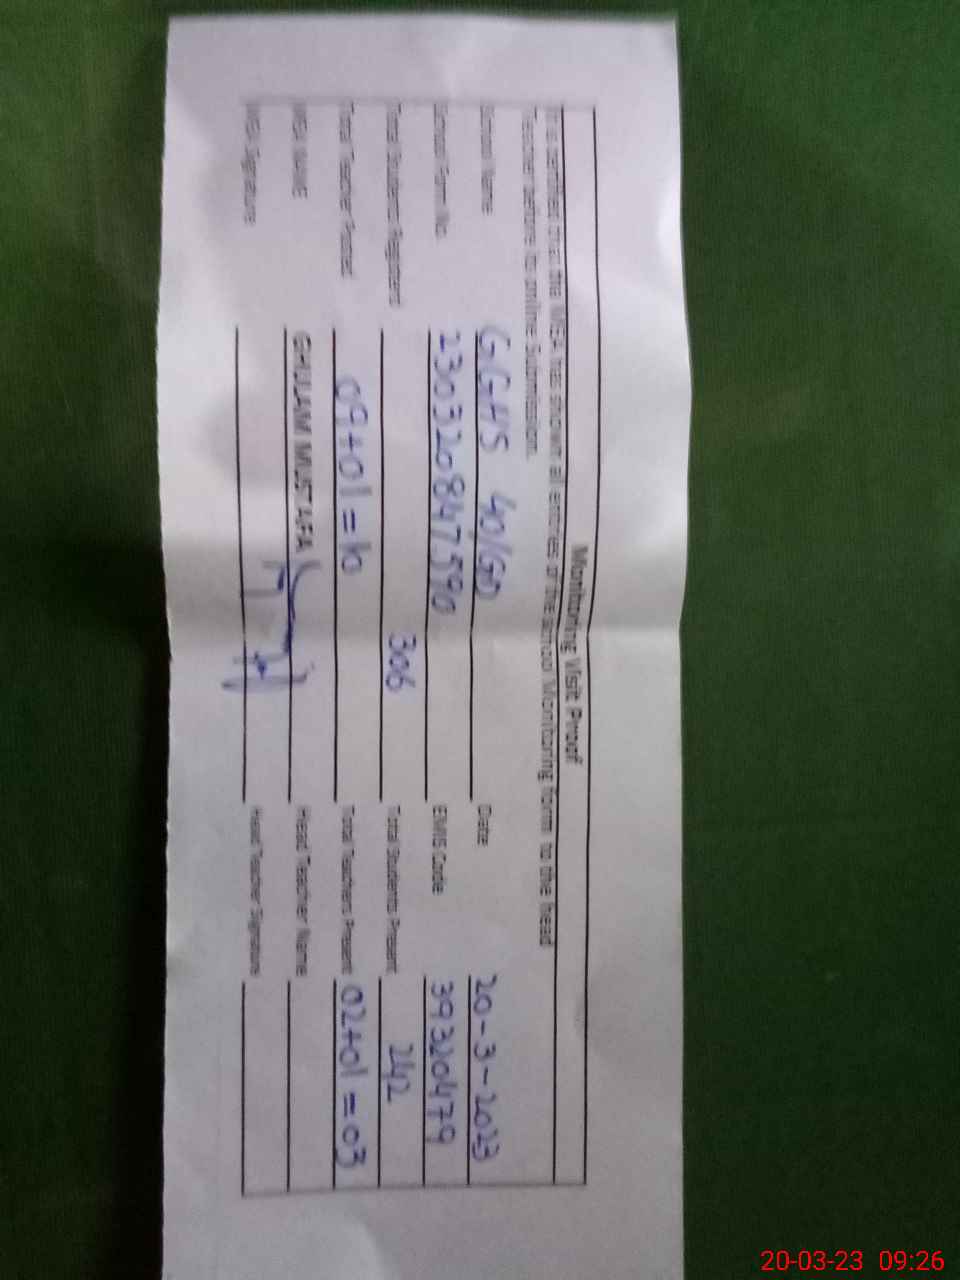 Monitoring Visit Proof
It is certified that the MEA has shown all entries of the School Monitoring form to the head
Teacher before its online Submission.
School Name GGHS 40/GD Date 20-3-2023
School Form No. 230320847590 EMIS Code 39320479
Total Students Registered 306 Total Students Present 242
Total Teacher Posted 09+01=10 Total Teachers Present 02+01=03
MEA NAME GHULAM MUSTAFA Head Teacher Name
MEA Signature Head Teacher Signature
20-03-23 09:26